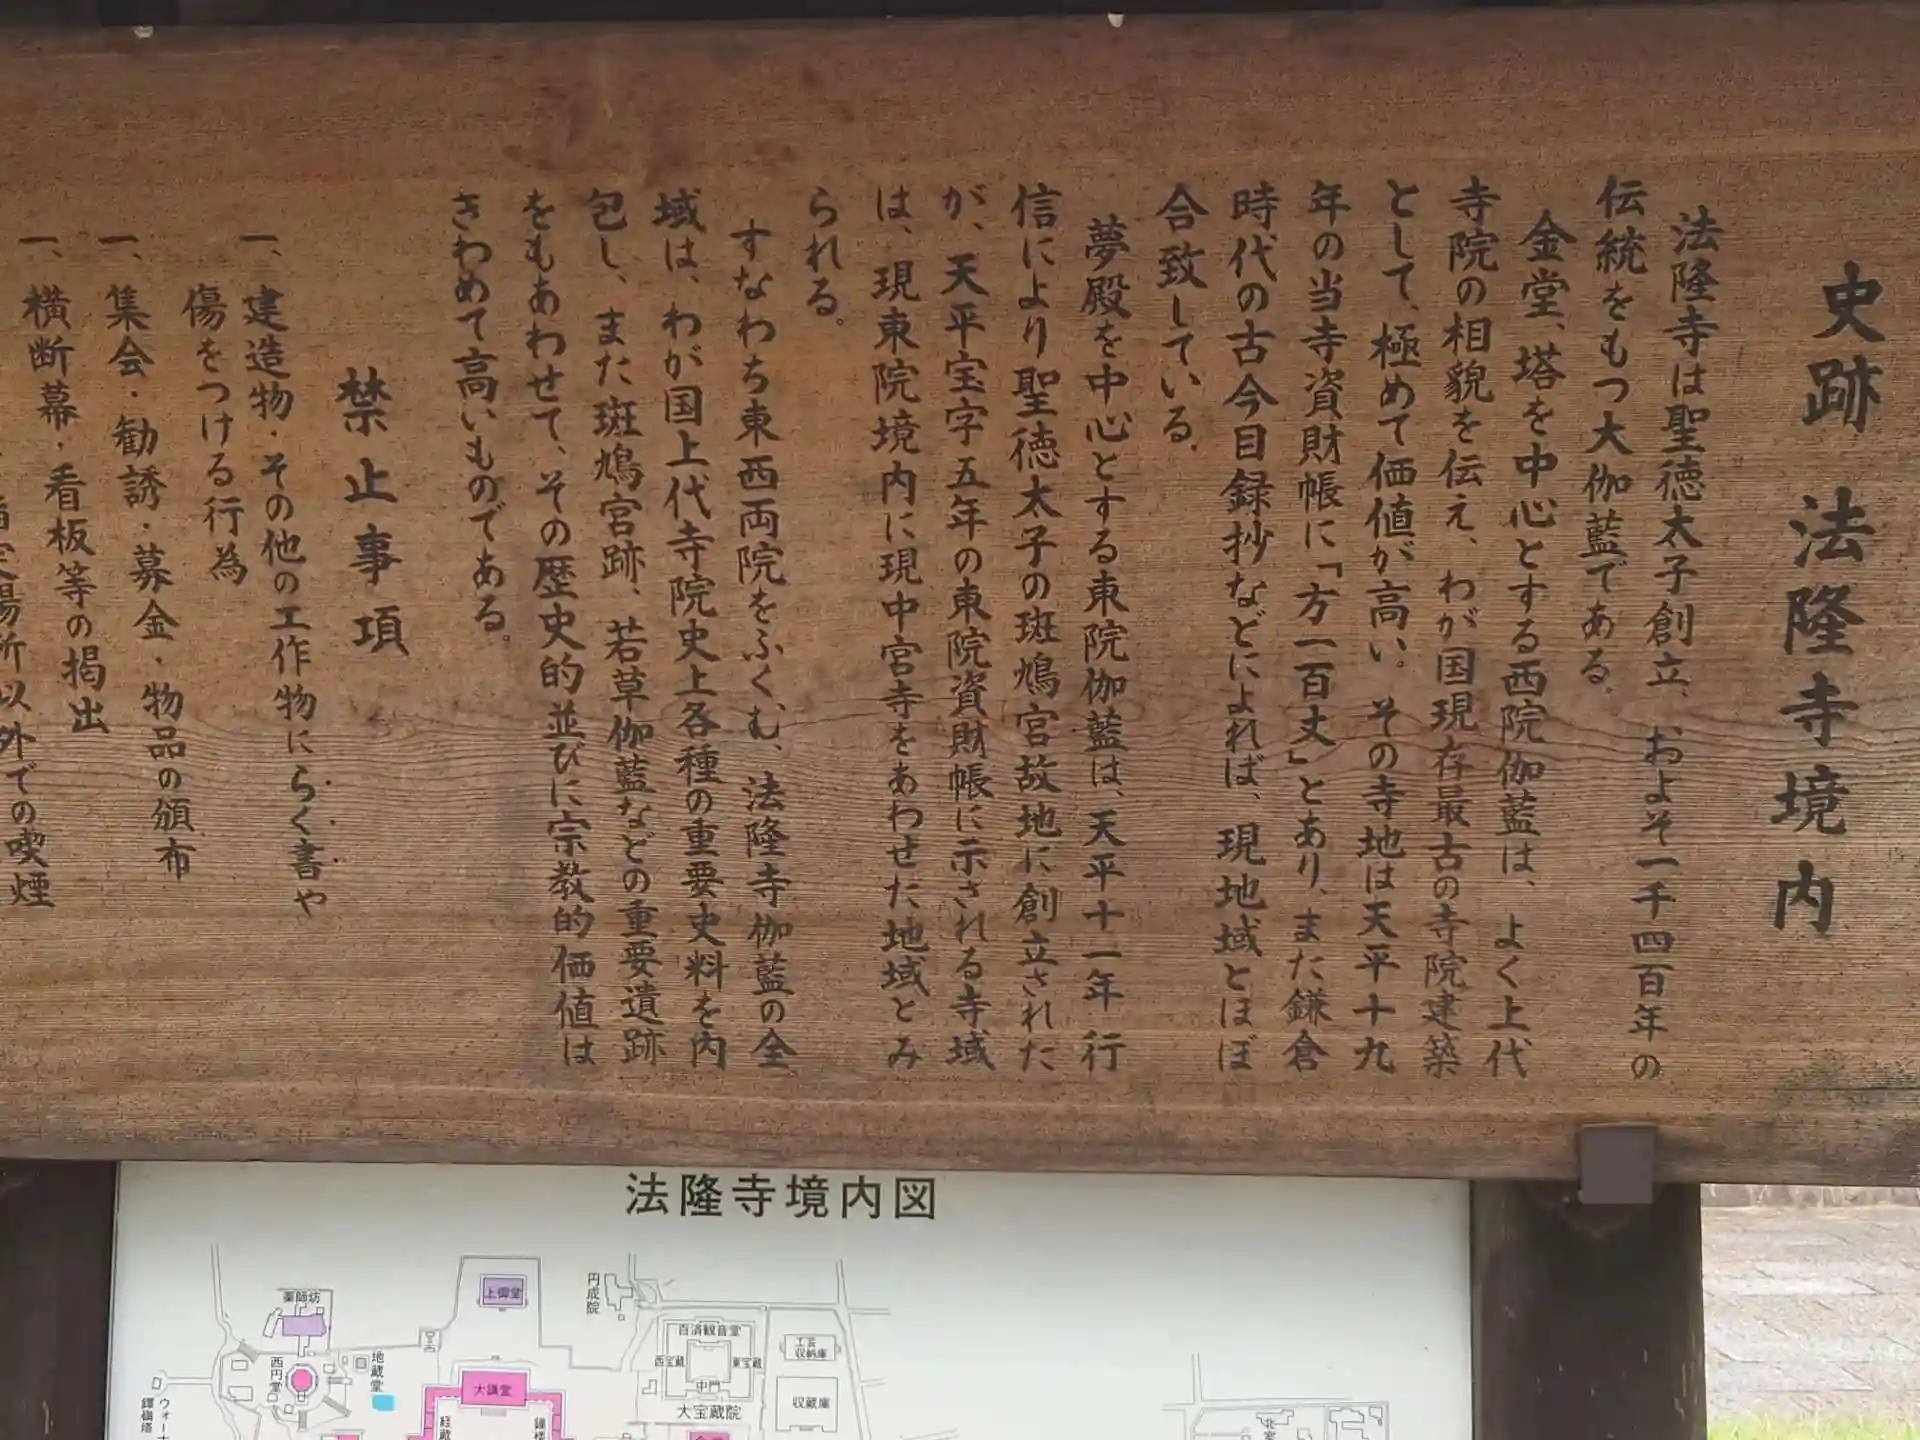 史跡 法隆寺境内
法隆寺は聖徳太子創立、およそ一千四百年の
伝統をもつ大伽藍である。
金堂、塔を中心とする西院伽藍は、よく上代
寺院の相貌を伝え、わが国現存最古の寺院建築
として、極めて価値が高い。その寺地は天平十九
年の当寺資財帳に「方一百丈」とあり、また鎌倉
時代の古今目録抄などによれば、現地域とほぼ
合致している。
夢殿を中心とする東院伽藍は、天平十一年行
信により聖徳太子の斑鳩宮故地に創立された
が、天平宝字五年の東院資財帳に示される寺域
は、現東院境内に現中宮寺をあわせた地域とみ
られる。
すなわち東西両院をふくむ、法隆寺伽藍の全
域は、わが国上代寺院史上各種の重要史料を内
包し、また斑鳩宮跡、若草伽藍などの重要遺跡
をもあわせて、その歴史的並びに宗教的価値は
きわめて高いものである。
禁止事項
一、建造物・その他の工作物にらく書や
傷をつける行為
一、集会・勧誘・募金・物品の頒布
一、横断幕・看板等の掲出
指定場所以外での喫煙
法隆寺境内図
上御堂
円成院
薬師坊
百済観音堂
工芸収納庫
西宝蔵
東宝蔵
中門
西円堂
地蔵堂
大講堂
大宝蔵院
収蔵庫
経蔵
北室